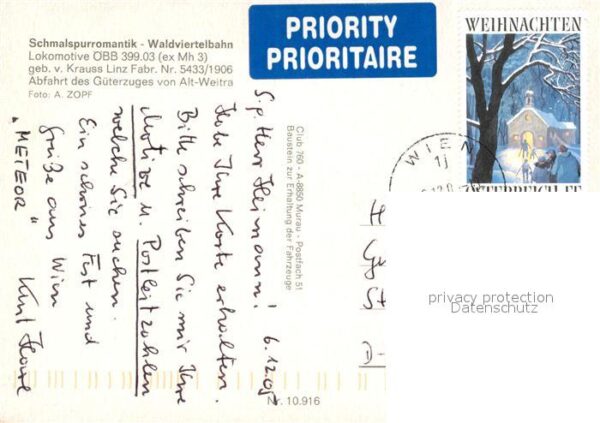 Schmalspurromantik - Waldviertelbahn
Lokomotive ÖBB 399.03 (ex Mh 3)
geb. v. Krauss Linz Fabr. Nr. 5433/1906
Abfahrt des Güterzuges von Alt-Weitra
Foto: A. ZOPF
PRIORITY
PRIORITAIRE
WEIHNACHTEN
WIEN
S.g. Herr Heimann! 6.12.05
Habe Ihre Karte erhalten.
Bitte schreiben Sie mir Ihre
Motive u. Postleitzahlen
welche Sie suchen.
Ein schönes Fest und
Grüße aus Wien
"METEOR" Kurt
Club 760 - A-8850 Murau - Postfach 51
Baustein zur Erhaltung der Fahrzeuge
H
St
D-
privacy protection
Datenschutz
Nr. 10.916